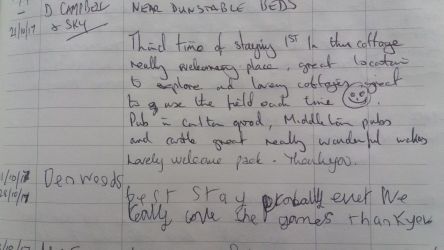 D CAMPBELL NEAR DUNSTABLE BEDS
21/10/17 & SKY
Third time of staying 1ST In this cottage
really welcoming place, great location
to explore and lovely cottages, great
to use the field each time
Pub in carlton good, Middleham pubs
and castle great really wonderful
Lovely welcome pack. Thankyou.
best stay probably ever We
really love the games thankyew